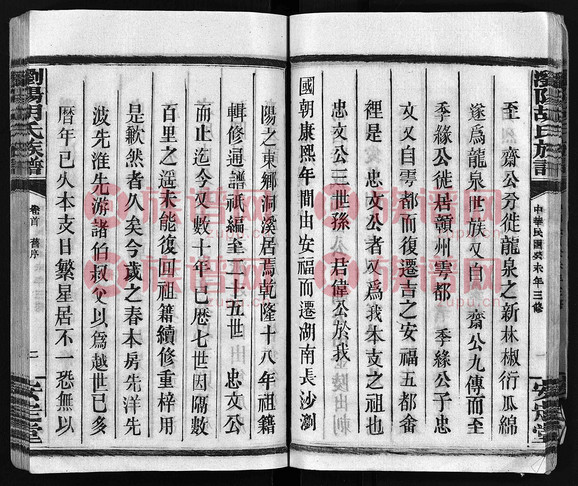 至　齋公分徙龍泉之新林椒衍瓜綿
遂為龍泉世族又自　齋公九傳而至
季緣公徙居贛州雩都　季緣公子忠
文又自雩都而復遷吉之安福五都畲
裡是　忠文公者又為我本支之祖也
忠文公三世孫　君偉公於我
國朝康熙年間由安福而遷湖南長沙瀏
陽之東鄉洞溪居焉乾隆十八年祖籍
輯修通譜祇編至三十五世　忠文公
而止迄今又數十年已歷七世因隔數
百里之遥未能復回祖籍續修重梓用
是歉然者久矣今歲之春本房先洋先
波先淮先游諸伯叔父以為越世已多
曆年已久本支日繁星居不一恐無以
瀏陽胡氏族譜
中華民國癸未年三修
一
安定堂
瀏陽胡氏族譜
卷首　舊序
二
安定堂
族谱网